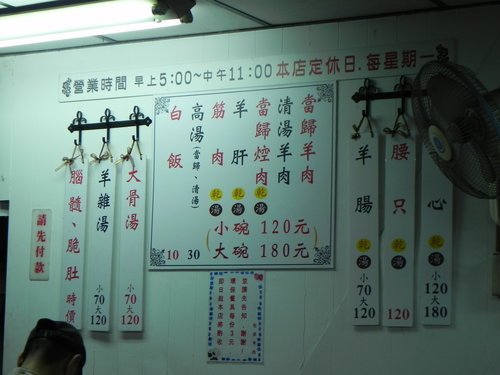 營業時間 早上5:00~中午11:00 本店定休日.每星期一
當歸羊肉
清湯羊肉
當歸煙肉 乾 湯
羊肝 乾 湯
筋肉 乾 湯
(小碗 120元
大碗 180元)
高湯(當歸、清湯) 30
白飯 10
大骨湯 小70大120
羊雜湯 小70大120
腦髓、脆肚 時價
請先付款
心 乾 湯 小120大180
腰只 乾 湯 120
羊腸 乾 湯 小70大120
並請先告知,謝謝!
環保餐具每份3元
即日起本店將酌收